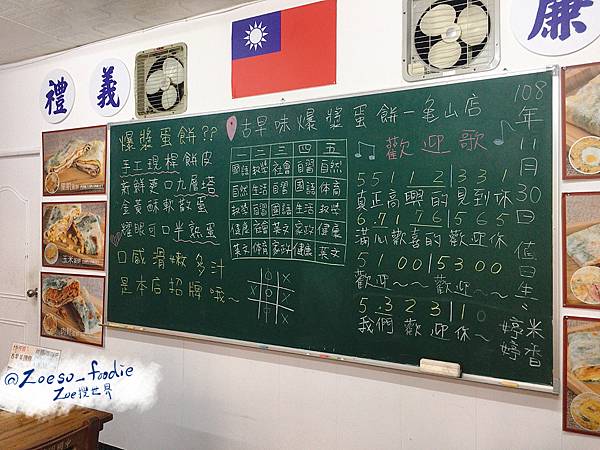 禮
義
廉
爆漿蛋餅??
手工現桿餅皮
新鮮更口九層塔
金黃酥軟嫩蛋
耀眼可口半熟蛋
口感滑嫩多汁
是本店招牌哦~
古早味爆漿蛋餅-龜山店
一二三四五
國語 數學 社會 自習 自然
自然 生活 自習 國語 體育
數學 音樂 國語 生活 數學
健康 社會 英文 家政 健康
英文 體育 家政 健康 英文
歡迎歌
5 5 1 1 2 | 3 3 1
真正高興的見到你
6.7 1 7 6 | 5 6 5
滿心歡喜的歡迎你
5 1 0 0 | 5 3 0 0
歡迎~~歡迎~~
5.3 2 3 | 1 0
我們歡迎你~
108年11月30日 值日生:
米香
婷婷
@Zoeso_foodie
Zoe搜世界